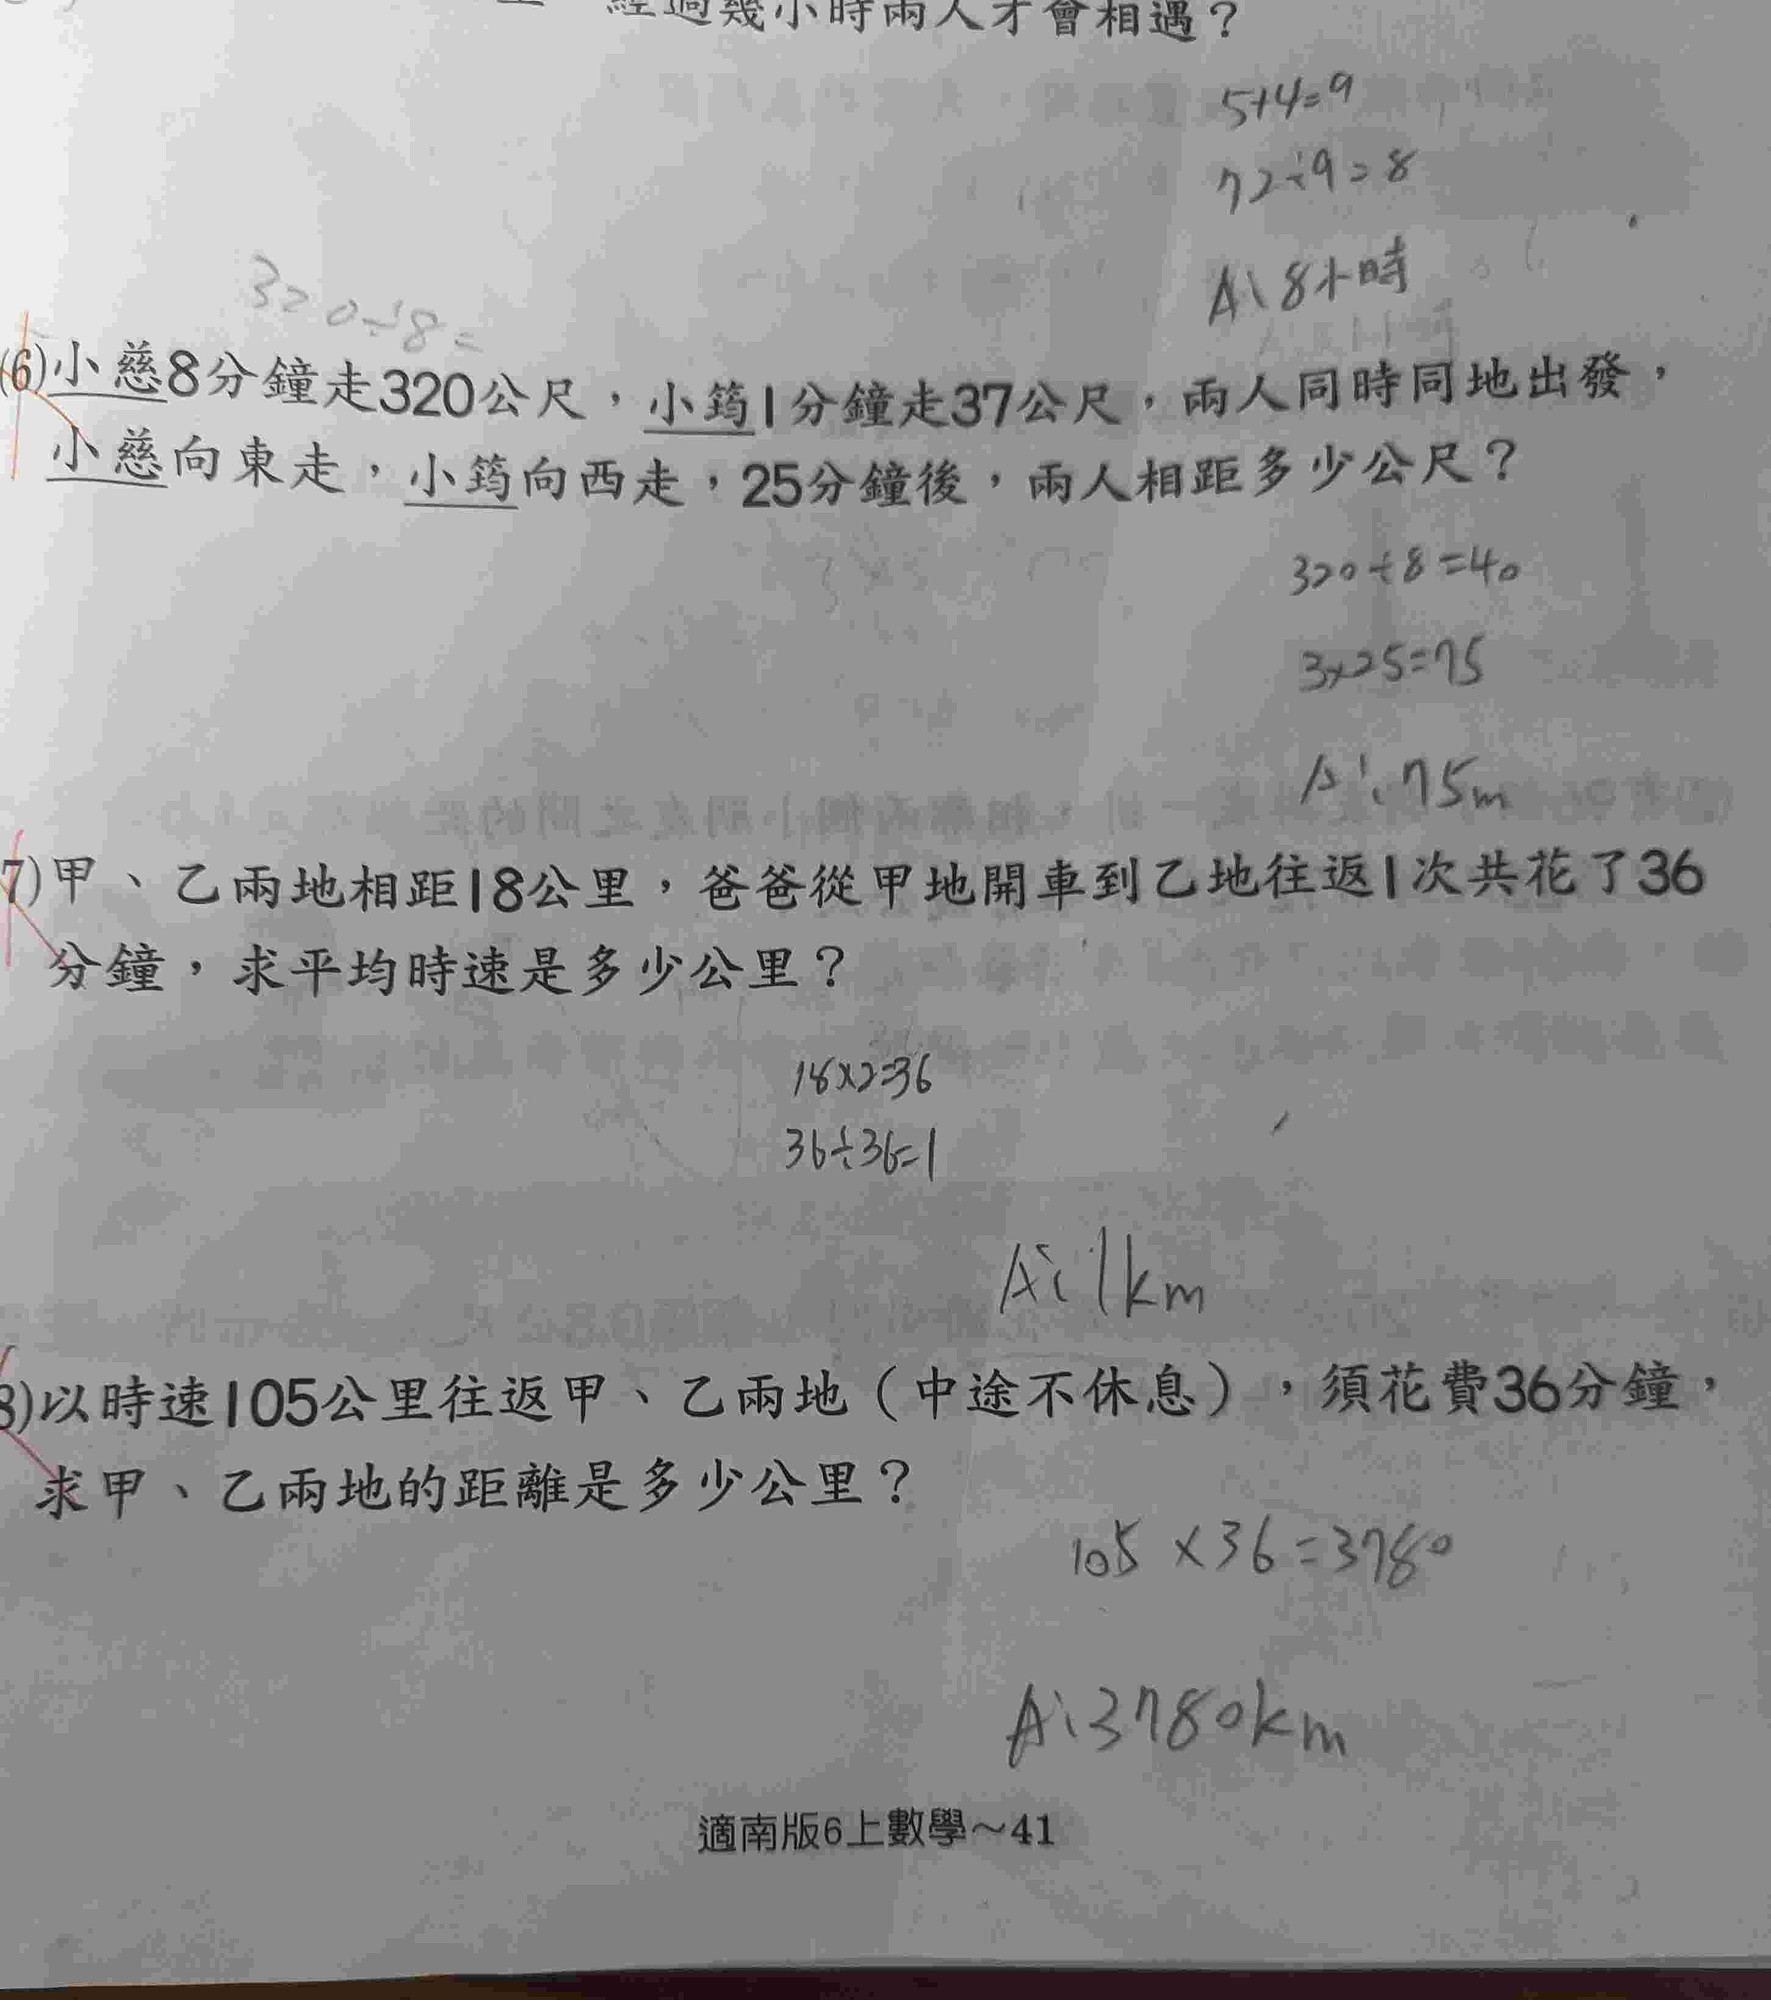 經過幾小時兩人才會相遇？
5+4=9
72÷9=8
A：8小時
320÷8=
(6)小慈8分鐘走320公尺，小筠1分鐘走37公尺，兩人同時同地出發，
小慈向東走，小筠向西走，25分鐘後，兩人相距多少公尺？
320÷8=40
3×25=75
A：75m
7)甲、乙兩地相距18公里，爸爸從甲地開車到乙地往返1次共花了36
分鐘，求平均時速是多少公里？
18×2=36
36÷36=1
A：1km
8)以時速105公里往返甲、乙兩地（中途不休息），須花費36分鐘，
求甲、乙兩地的距離是多少公里？
105×36=3780
A：3780km
適南版6上數學～41